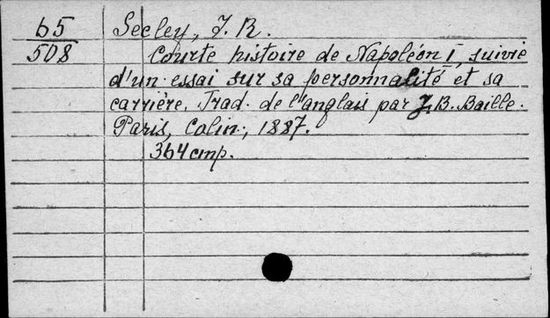 65
508
Seeley, J. R.
Courte histoire de Napoléon I, suivie
d'un essai sur sa personnalité et sa
carrière. Trad. de l'anglais par J.B. Baille.
Paris, Colin, 1887.
364 cmp.